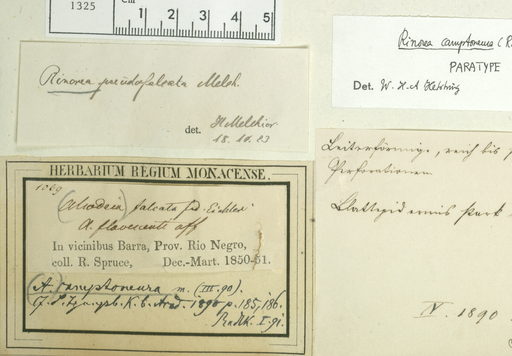 1325
cm 1 2 3 4 5
Rinorea pseudofalcata Melch.
det. H Melchior
18.10.23
Rinorea camptoneura (R
PARATYPE
Det. W. H. A Hekking
HERBARIUM REGIUM MONACENSE.
1069
(Alsodeia) falcata fid. Eichler
A. flavescenti aff
In vicinibus Barra, Prov. Rio Negro,
coll. R. Spruce, Dec.-Mart. 1850-51.
(A.) camptoneura m. (III.90).
K. b. Acad. 1890 p. 185, 186.
Radlk. I.91.
Leiterförmige, reich bis
Perforationen
Blattepidermis stark
IV. 1890